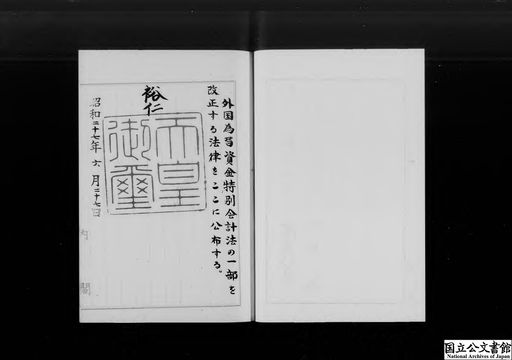 外国為替資金特別会計法の一部を
改正する法律をここに公布する。
裕仁
天皇
御璽
昭和二十七年六月二十七日
内閣
国立公文書館
National Archives of Japan